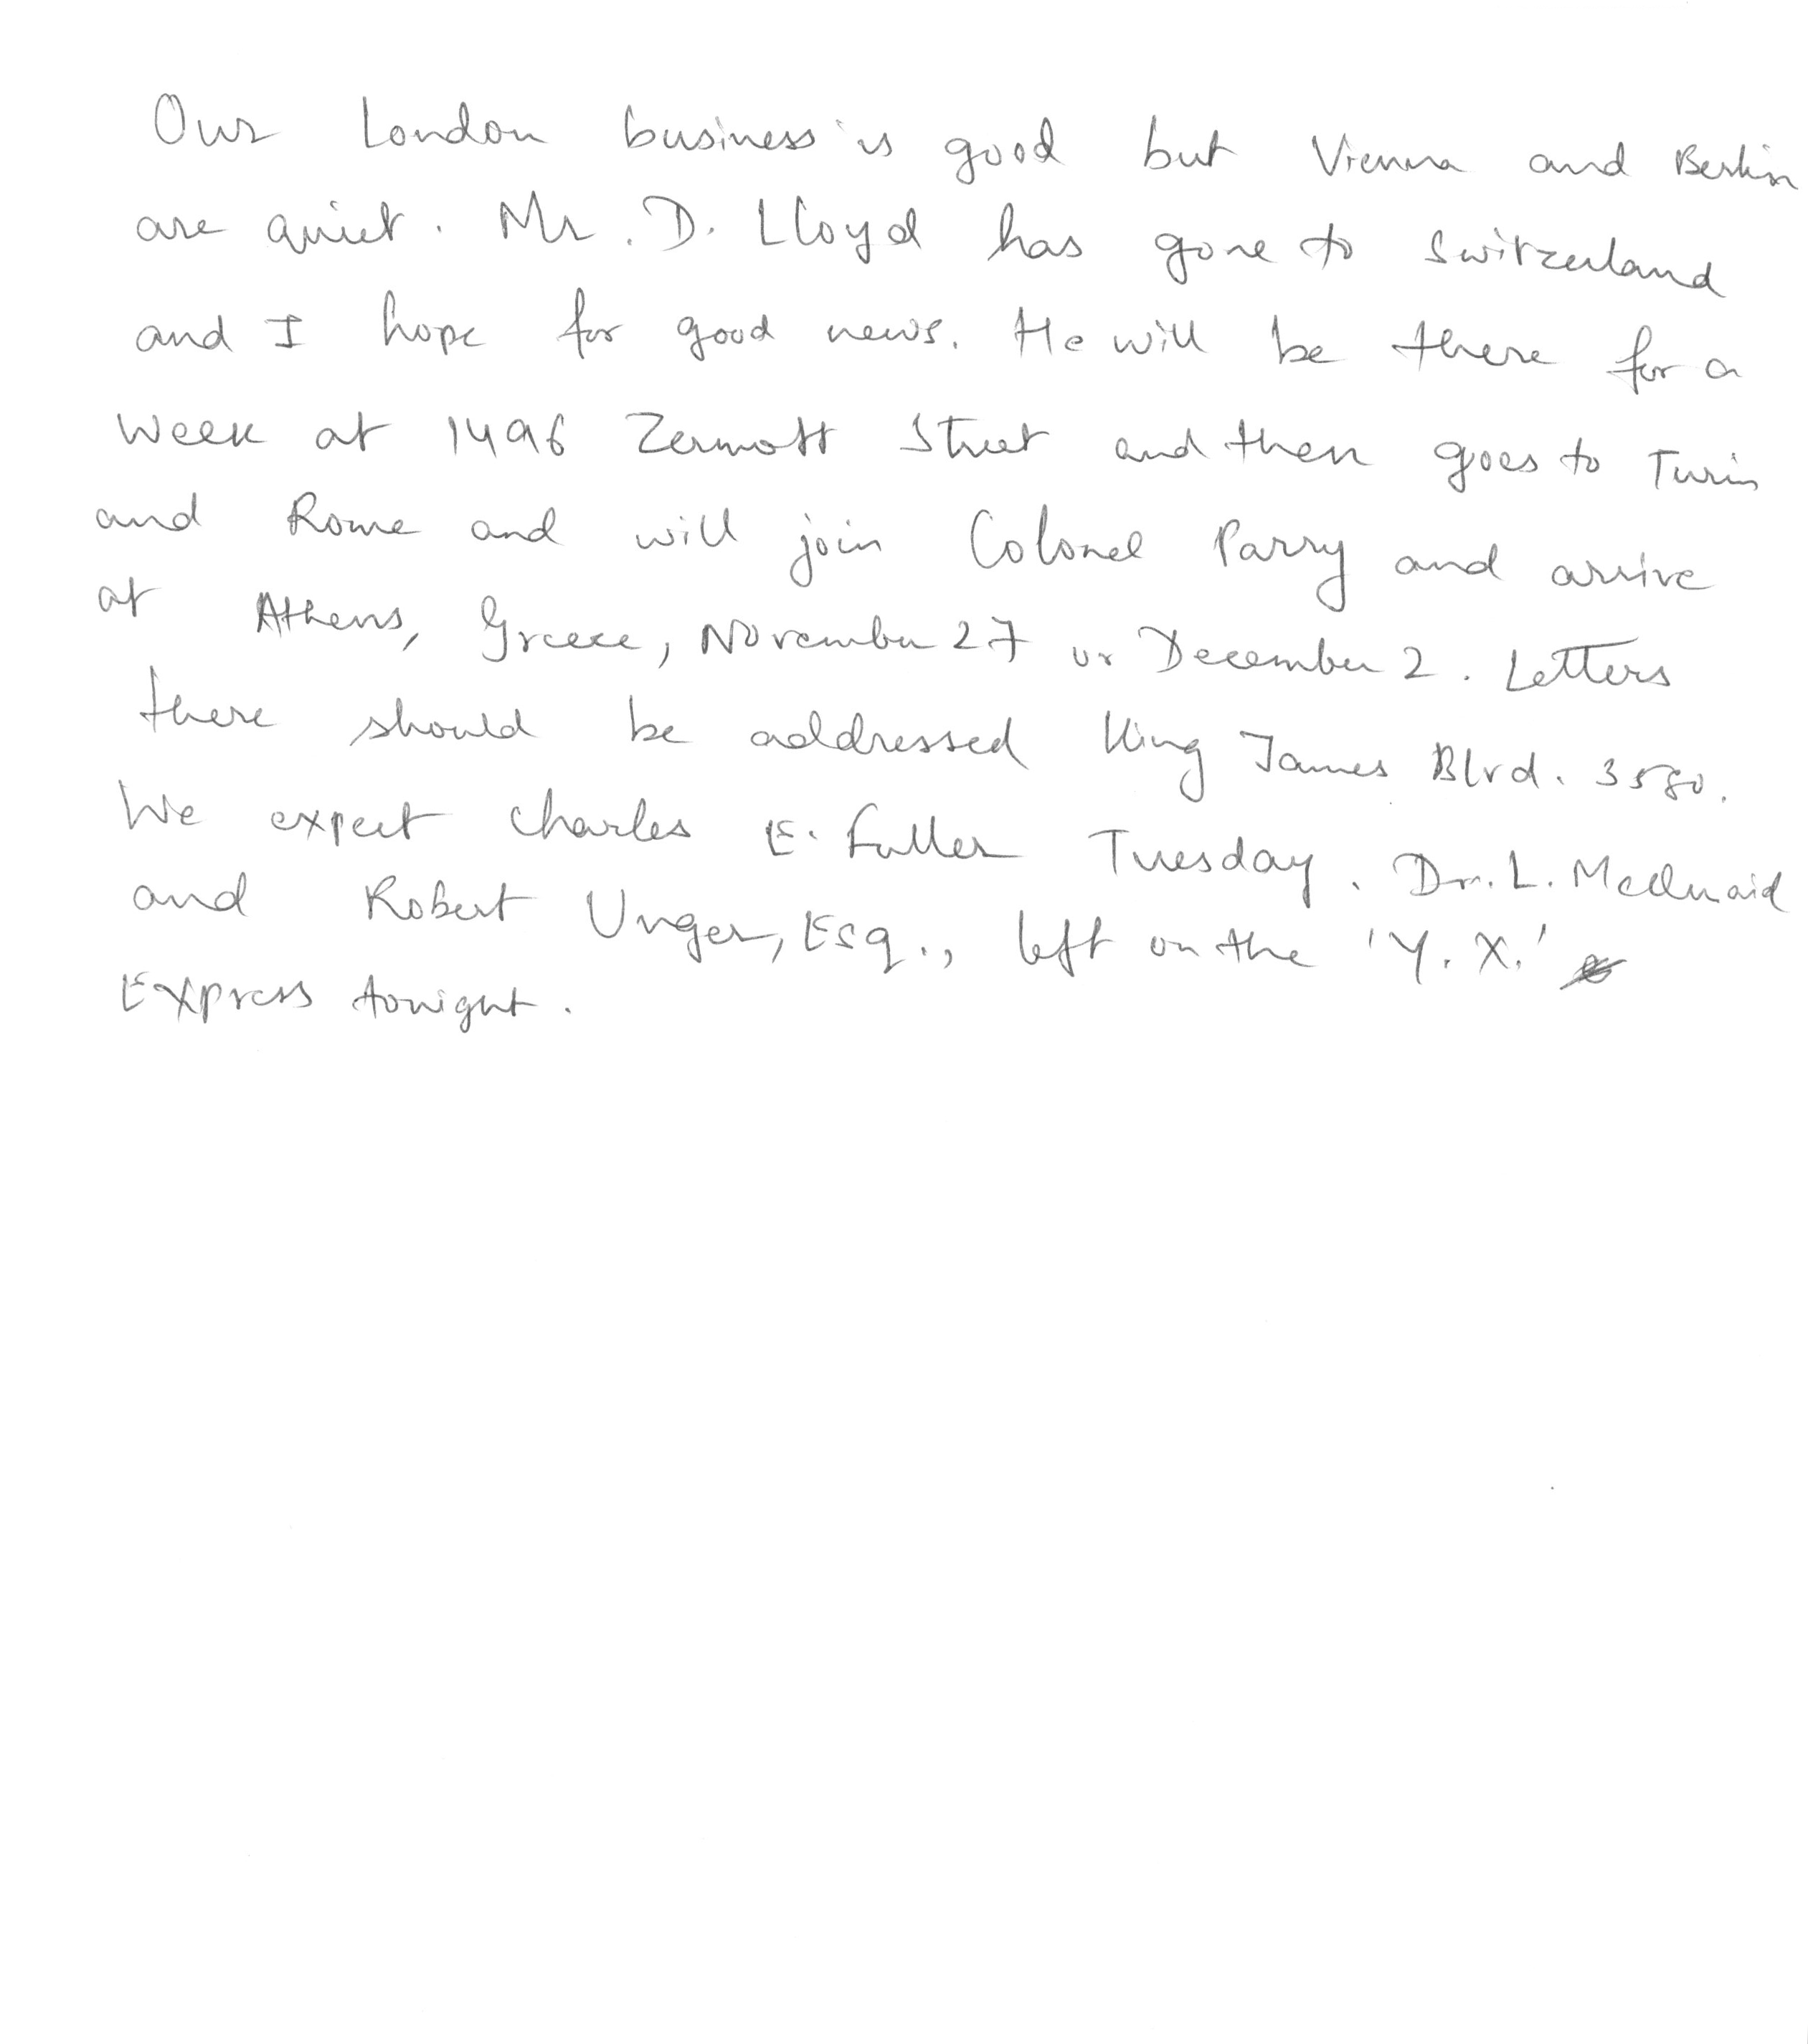 Our London business is good but Vienna and Berlin
are quiet. Mr. D. Lloyd has gone to Switzerland
and I hope for good news. He will be there for a
week at 1496 Zermott Street and then goes to Turin
and Rome and will join Colonel Parry and arrive
at Athens, Greece, November 27 or December 2. Letters
there should be addressed King James Blvd. 3580.
We expect Charles E. Fuller Tuesday. Dr. L. McQuaid
and Robert Unger, Esq., left on the 'Y. X.'
Express tonight.